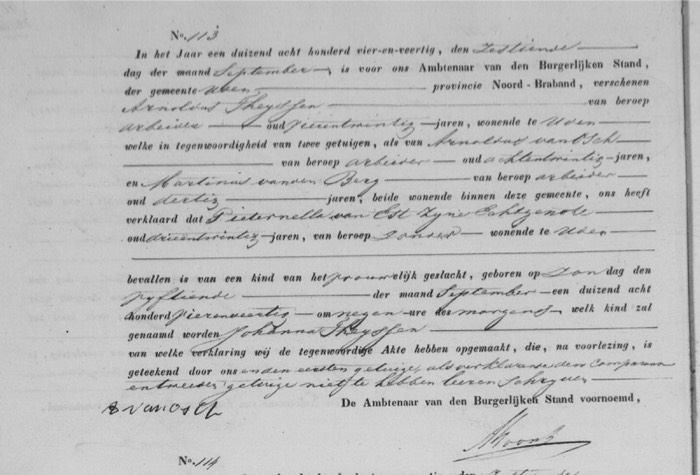 No. 113
In het Jaar een duizend acht honderd vier-en-veertig, den zestiende
dag der maand September, is voor ons Ambtenaar van den Burgerlijken Stand,
der gemeente Uden provincie Noord-Braband, verschenen
Arnoldus Theyssen van beroep
arbeider oud vierentwintig jaren, wonende te Uden
welke in tegenwoordigheid van twee getuigen, als van Arnoldus van Osch
van beroep arbeider oud achtentwintig jaren,
en Martinus van den Berg van beroep arbeider
oud dertig jaren, beide wonende binnen deze gemeente, ons heeft
verklaard dat Pieternella van Est zyne Echtgenote
oud drieentwintig jaren, van beroep zonder wonende te Uden
bevallen is van een kind van het vrouwelijk geslacht, geboren op Zondag den
vyftiende der maand September een duizend acht
honderd vierenveertig om negen ure des morgens, welk kind zal
genaamd worden Johanna Theyssen
van welke verklaring wij de tegenwoordige Akte hebben opgemaakt, die, na voorlezing, is
geteekend door ons en den eersten getuige, als verklarende den Comparant
en tweeden getuige niet te hebben leeren schryven
De Ambtenaar van den Burgerlijken Stand voornoemd,
van Osch
No. 114